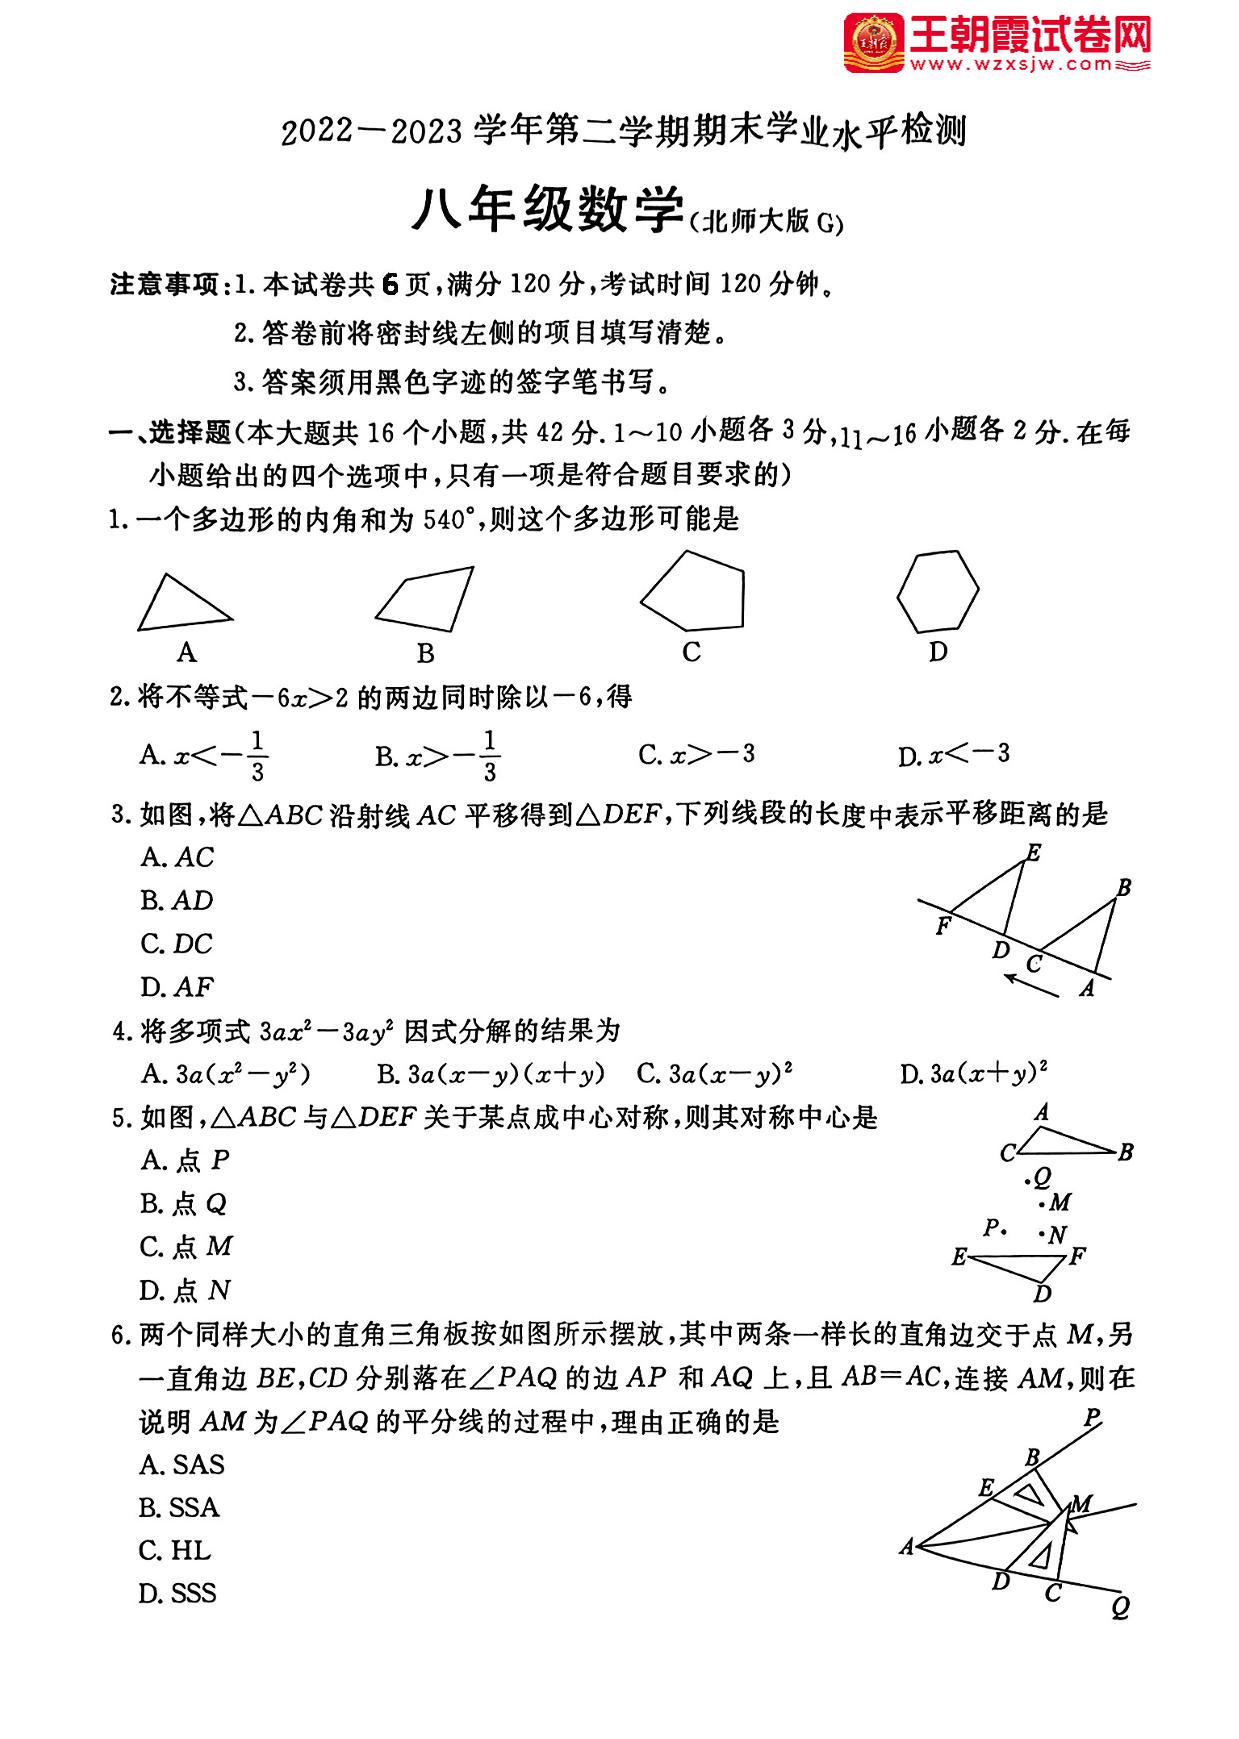 王朝霞试卷网
www.wzxsjw.com
2022－2023 学年第二学期期末学业水平检测
八年级数学(北师大版 G)
注意事项:1. 本试卷共 6 页,满分 120 分,考试时间 120 分钟。
2. 答卷前将密封线左侧的项目填写清楚。
3. 答案须用黑色字迹的签字笔书写。
一、选择题(本大题共 16 个小题,共 42 分. 1～10 小题各 3 分,11～16 小题各 2 分. 在每
小题给出的四个选项中,只有一项是符合题目要求的)
1. 一个多边形的内角和为 540°,则这个多边形可能是
A B C D
2. 将不等式－6x＞2 的两边同时除以－6,得
A. x＜－1/3 B. x＞－1/3 C. x＞－3 D. x＜－3
3. 如图,将△ABC 沿射线 AC 平移得到△DEF,下列线段的长度中表示平移距离的是
A. AC
B. AD
C. DC
D. AF
E B F D C A
4. 将多项式 3ax²－3ay² 因式分解的结果为
A. 3a(x²－y²) B. 3a(x－y)(x＋y) C. 3a(x－y)² D. 3a(x＋y)²
5. 如图,△ABC 与△DEF 关于某点成中心对称,则其对称中心是
A. 点 P
B. 点 Q
C. 点 M
D. 点 N
A C B Q M P N E F D
6. 两个同样大小的直角三角板按如图所示摆放,其中两条一样长的直角边交于点 M,另
一直角边 BE,CD 分别落在∠PAQ 的边 AP 和 AQ 上,且 AB＝AC,连接 AM,则在
说明 AM 为∠PAQ 的平分线的过程中,理由正确的是
A. SAS
B. SSA
C. HL
D. SSS
P B E M A D C Q